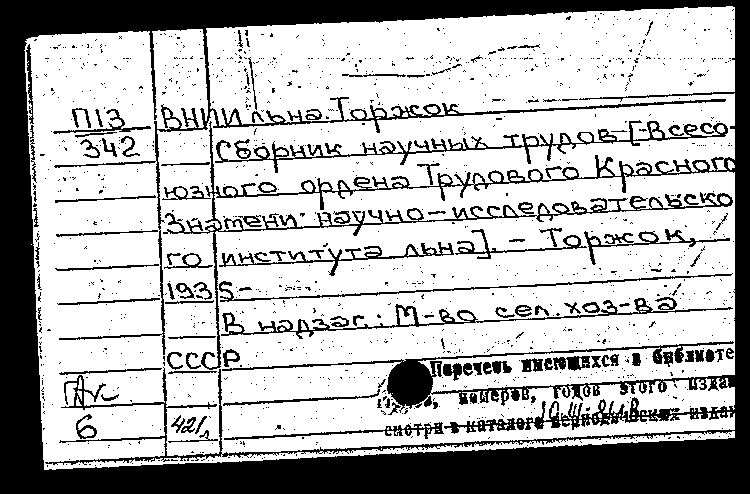 П13 ВНИИ льна. Торжок
342 Сборник научных трудов [Всесо-
юзного ордена Трудового Красного
Знамени научно-исследовательско
го института льна]. - Торжок,
1935-
В надзаг.: М-во сел. хоз-ва
СССР
Перечень имеющихся в библиоте
номеров, годов этого изда
6 421л
смотри в каталоге периодических издан